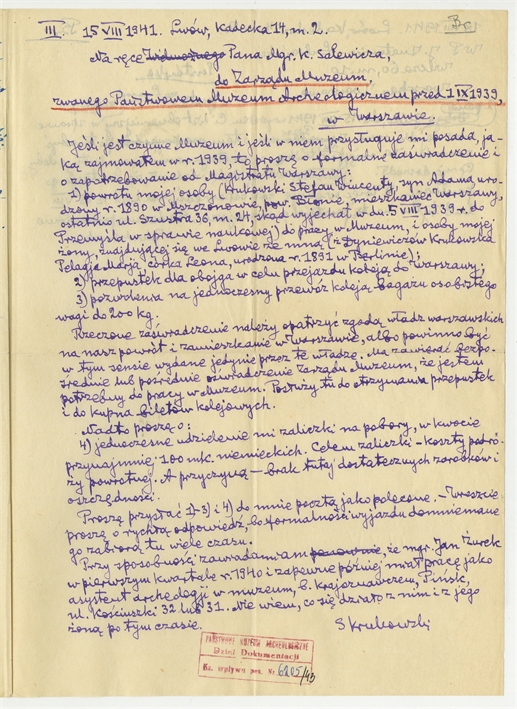 III. 15 VIII 1941. Lwów, Kadecka 14, m. 2.
Na ręce Pana Mgr. K. Salewicza,
do Zarządu Muzeum,
zwanego Państwowem Muzeum Archeologicznem przed 1 IX 1939,
w Warszawie.
Jeśli jest czynne Muzeum i jeśli w niem przysługuje mi posada, ja-
ką zajmowałem w r. 1939, to proszę o formalne zaświadczenie i
o zapotrzebowanie od Magistratu Warszawy:
1) powrotu mojej osoby (Krukowski Stefan Wincenty, syn Adama, uro-
dzony r. 1890 w Mszczonowie, pow. Błonie, mieszkaniec Warszawy,
ostatnio ul. Szustra 36, m. 24, skąd wyjechał w dn. 5 VIII 1939 r. do
Przemyśla w sprawie naukowej) do pracy w Muzeum, i osoby mojej
żony, znajdującej się we Lwowie ze mną (z Dyniewiczów Krukowska
Pelagja Marja, córka Leona, urodzona r. 1891 w Berlinie);
2) przepustek dla obojga w celu przejazdu koleją do Warszawy;
3) pozwolenia na jednoczesny przewóz koleją bagażu osobistego
wagi do 200 kg.
Rzeczone zaświadczenie należy opatrzyć zgodą władz warszawskich
na nasz powrót i zamieszkanie w Warszawie, albo powinno być
w tym sensie wydane jedynie przez te władze. Ma zawierać bezpo-
średnie lub pośrednie oświadczenie Zarządu Muzeum, że jestem
potrzebny do pracy w Muzeum. Posłuży tu do otrzymania przepustek
i do kupna biletów kolejowych.
Nadto proszę o:
4) jednoczesne udzielenie mi zaliczki na pobory, w kwocie
przynajmniej 100 mk. niemieckich. Celem zaliczki – koszty podró-
ży powrotnej. A przyczyną – brak tutaj dostatecznych zarobków i
oszczędności.
Proszę przysłać 1)-3) i 4) do mnie pocztą jako polecone. – Wreszcie
proszę o rychłą odpowiedź, bo formalności wyjazdu domniemane
go zabiorą tu wiele czasu.
Przy sposobności zawiadamiam ponownie, że mgr. Jan Żurek
w pierwszym kwartale r. 1940 i zapewne później miał pracę jako
asystent archeologji w muzeum, b. krajoznawczem, Pińsk,
ul. Kościuszki 32 lub 31. Nie wiem, co się działo z nim i z jego
żoną po tym czasie. S Krukowski
PAŃSTWOWE MUZEUM ARCHEOLOGICZNE
Dział Dokumentacji
Ks. wpływu poz. Nr 6205/43